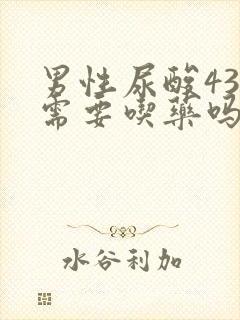 男性尿酸43
需要喫藥吗
水谷利加